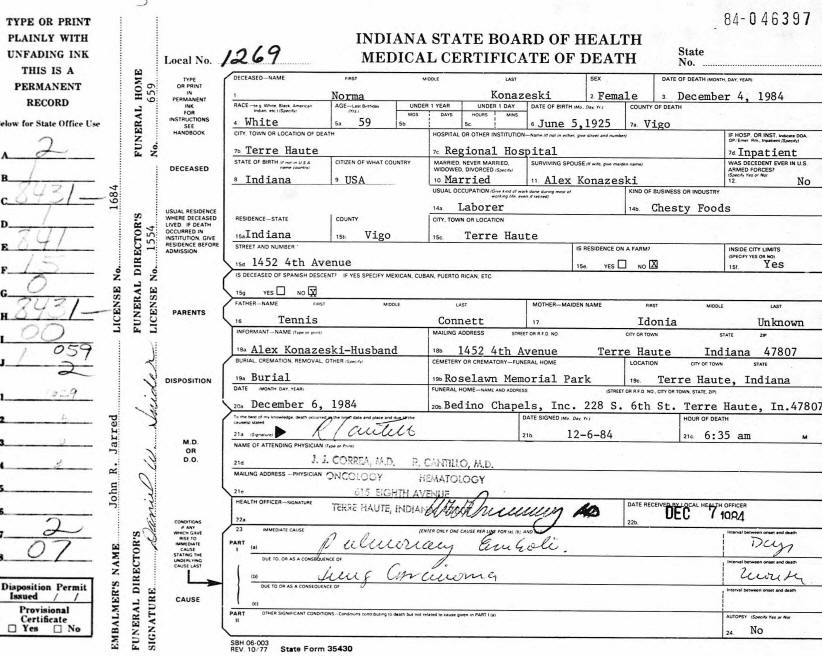 84-046397
TYPE OR PRINT
PLAINLY WITH
UNFADING INK
THIS IS A
PERMANENT
RECORD
elow for State Office Use
A 2
B
C 8431
D 1
E 841
F 15
G 0
H 8431
I 00
J 059
2
1
2
3
4
5
6
7 2
8 07
Disposition Permit
Issued / /
Provisional
Certificate
Yes No
EMBALMER'S NAME John R. Jarred LICENSE No. 1684
FUNERAL DIRECTOR'S
SIGNATURE Daniel W. Snider
FUNERAL DIRECTOR'S
LICENSE No. 1554
FUNERAL HOME
No. 659
INDIANA STATE BOARD OF HEALTH
Local No. 1269 MEDICAL CERTIFICATE OF DEATH State
No.
TYPE
OR PRINT
IN
PERMANENT
INK
FOR
INSTRUCTIONS
SEE
HANDBOOK
DECEASED—NAME FIRST MIDDLE LAST SEX DATE OF DEATH (MONTH, DAY, YEAR)
1. Norma Konazeski 2 Female 3. December 4, 1984
RACE—(e.g. White, Black, American Indian, etc.) (Specify) AGE—Last Birthday (Yrs.) UNDER 1 YEAR UNDER 1 DAY DATE OF BIRTH (Mo., Day, Yr.) COUNTY OF DEATH
MOS DAYS HOURS MINS
4. White 5a 59 5b 5c. 6. June 5,1925 7a. Vigo
CITY, TOWN OR LOCATION OF DEATH HOSPITAL OR OTHER INSTITUTION—Name (If not in either, give street and number) IF HOSP. OR INST. Indicate DOA, OP/Emer. Rm., Inpatient (Specify)
7b Terre Haute 7c Regional Hospital 7d Inpatient
DECEASED
STATE OF BIRTH (If not in U.S.A. name country) CITIZEN OF WHAT COUNTRY MARRIED, NEVER MARRIED, WIDOWED, DIVORCED (Specify) SURVIVING SPOUSE (If wife, give maiden name) WAS DECEDENT EVER IN U.S. ARMED FORCES? (Specify Yes or No)
8 Indiana 9 USA 10 Married 11 Alex Konazeski 12. No
USUAL OCCUPATION (Give kind of work done during most of working life, even if retired) KIND OF BUSINESS OR INDUSTRY
14a Laborer 14b. Chesty Foods
USUAL RESIDENCE
WHERE DECEASED
LIVED. IF DEATH
OCCURRED IN
INSTITUTION, GIVE
RESIDENCE BEFORE
ADMISSION
RESIDENCE—STATE COUNTY CITY, TOWN OR LOCATION
15a Indiana 15b. Vigo 15c. Terre Haute
STREET AND NUMBER IS RESIDENCE ON A FARM? INSIDE CITY LIMITS (SPECIFY YES OR NO)
15d 1452 4th Avenue 15e. YES NO X 15f. Yes
IS DECEASED OF SPANISH DESCENT? IF YES SPECIFY MEXICAN, CUBAN, PUERTO RICAN, ETC
15g YES NO X
PARENTS
FATHER—NAME FIRST MIDDLE LAST MOTHER—MAIDEN NAME FIRST MIDDLE LAST
16 Tennis Connett 17. Idonia Unknown
INFORMANT—NAME (Type or print) MAILING ADDRESS STREET OR R.F.D. NO. CITY OR TOWN STATE ZIP
18a Alex Konazeski-Husband 18b 1452 4th Avenue Terre Haute Indiana 47807
DISPOSITION
BURIAL, CREMATION, REMOVAL, OTHER (Specify) CEMETERY OR CREMATORY—FUNERAL HOME LOCATION CITY OR TOWN STATE
19a Burial 19b Roselawn Memorial Park 19c. Terre Haute, Indiana
DATE (MONTH, DAY, YEAR) FUNERAL HOME—NAME AND ADDRESS (STREET OR R.F.D. NO., CITY OR TOWN, STATE, ZIP)
20a December 6, 1984 20b Bedino Chapels, Inc. 228 S. 6th St. Terre Haute, In.47807
M.D.
OR
D.O.
To the best of my knowledge, death occurred at the time, date and place and due to the cause(s) stated DATE SIGNED (Mo., Day, Yr.) HOUR OF DEATH
21a (Signature) R Cantillo 21b. 12-6-84 21c 6:35 am M
NAME OF ATTENDING PHYSICIAN (Type or Print)
21d J. J. CORREA, M.D. R. CANTILLO, M.D.
MAILING ADDRESS—PHYSICIAN ONCOLOGY HEMATOLOGY
21e 615 EIGHTH AVENUE
HEALTH OFFICER—SIGNATURE TERRE HAUTE, INDIANA DATE RECEIVED BY LOCAL HEALTH OFFICER
22a. MD 22b. DEC 7 1984
CONDITIONS
IF ANY
WHICH GAVE
RISE TO
IMMEDIATE
CAUSE
STATING THE
UNDERLYING
CAUSE LAST
CAUSE
23 IMMEDIATE CAUSE (ENTER ONLY ONE CAUSE PER LINE FOR (a), (b), AND (c)) Interval between onset and death
PART I (a) Pulmonary Emboli. Days
DUE TO, OR AS A CONSEQUENCE OF Interval between onset and death
(b) Lung Carcinoma Month
DUE TO OR AS A CONSEQUENCE OF Interval between onset and death
(c)
PART II OTHER SIGNIFICANT CONDITIONS—Conditions contributing to death but not related to cause given in PART I (a) AUTOPSY (Specify Yes or No)
24. No
SBH 06-003
REV. 10/77 State Form 35430